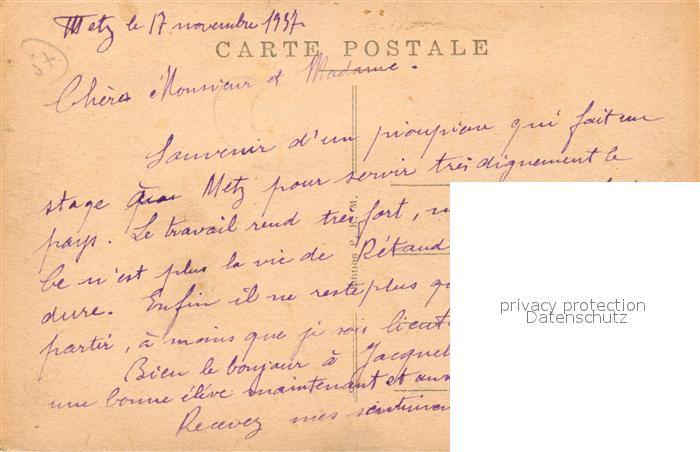 Metz le 17 novembre 1937.
CARTE POSTALE
Chers Monsieur et Madame.
Souvenir d'un pioupiou qui fait un
stage à Metz pour servir très dignement le
pays. Le travail rend très fort,
Ce n'est plus la vie de Rétaud
dure. Enfin il ne reste plus qu
partir, à moins que je sois lieut
Bien le bonjour à Jacquel
une bonne élève maintenant et aus
Recevez mes sentimen
Edition P.
privacy protection
Datenschutz